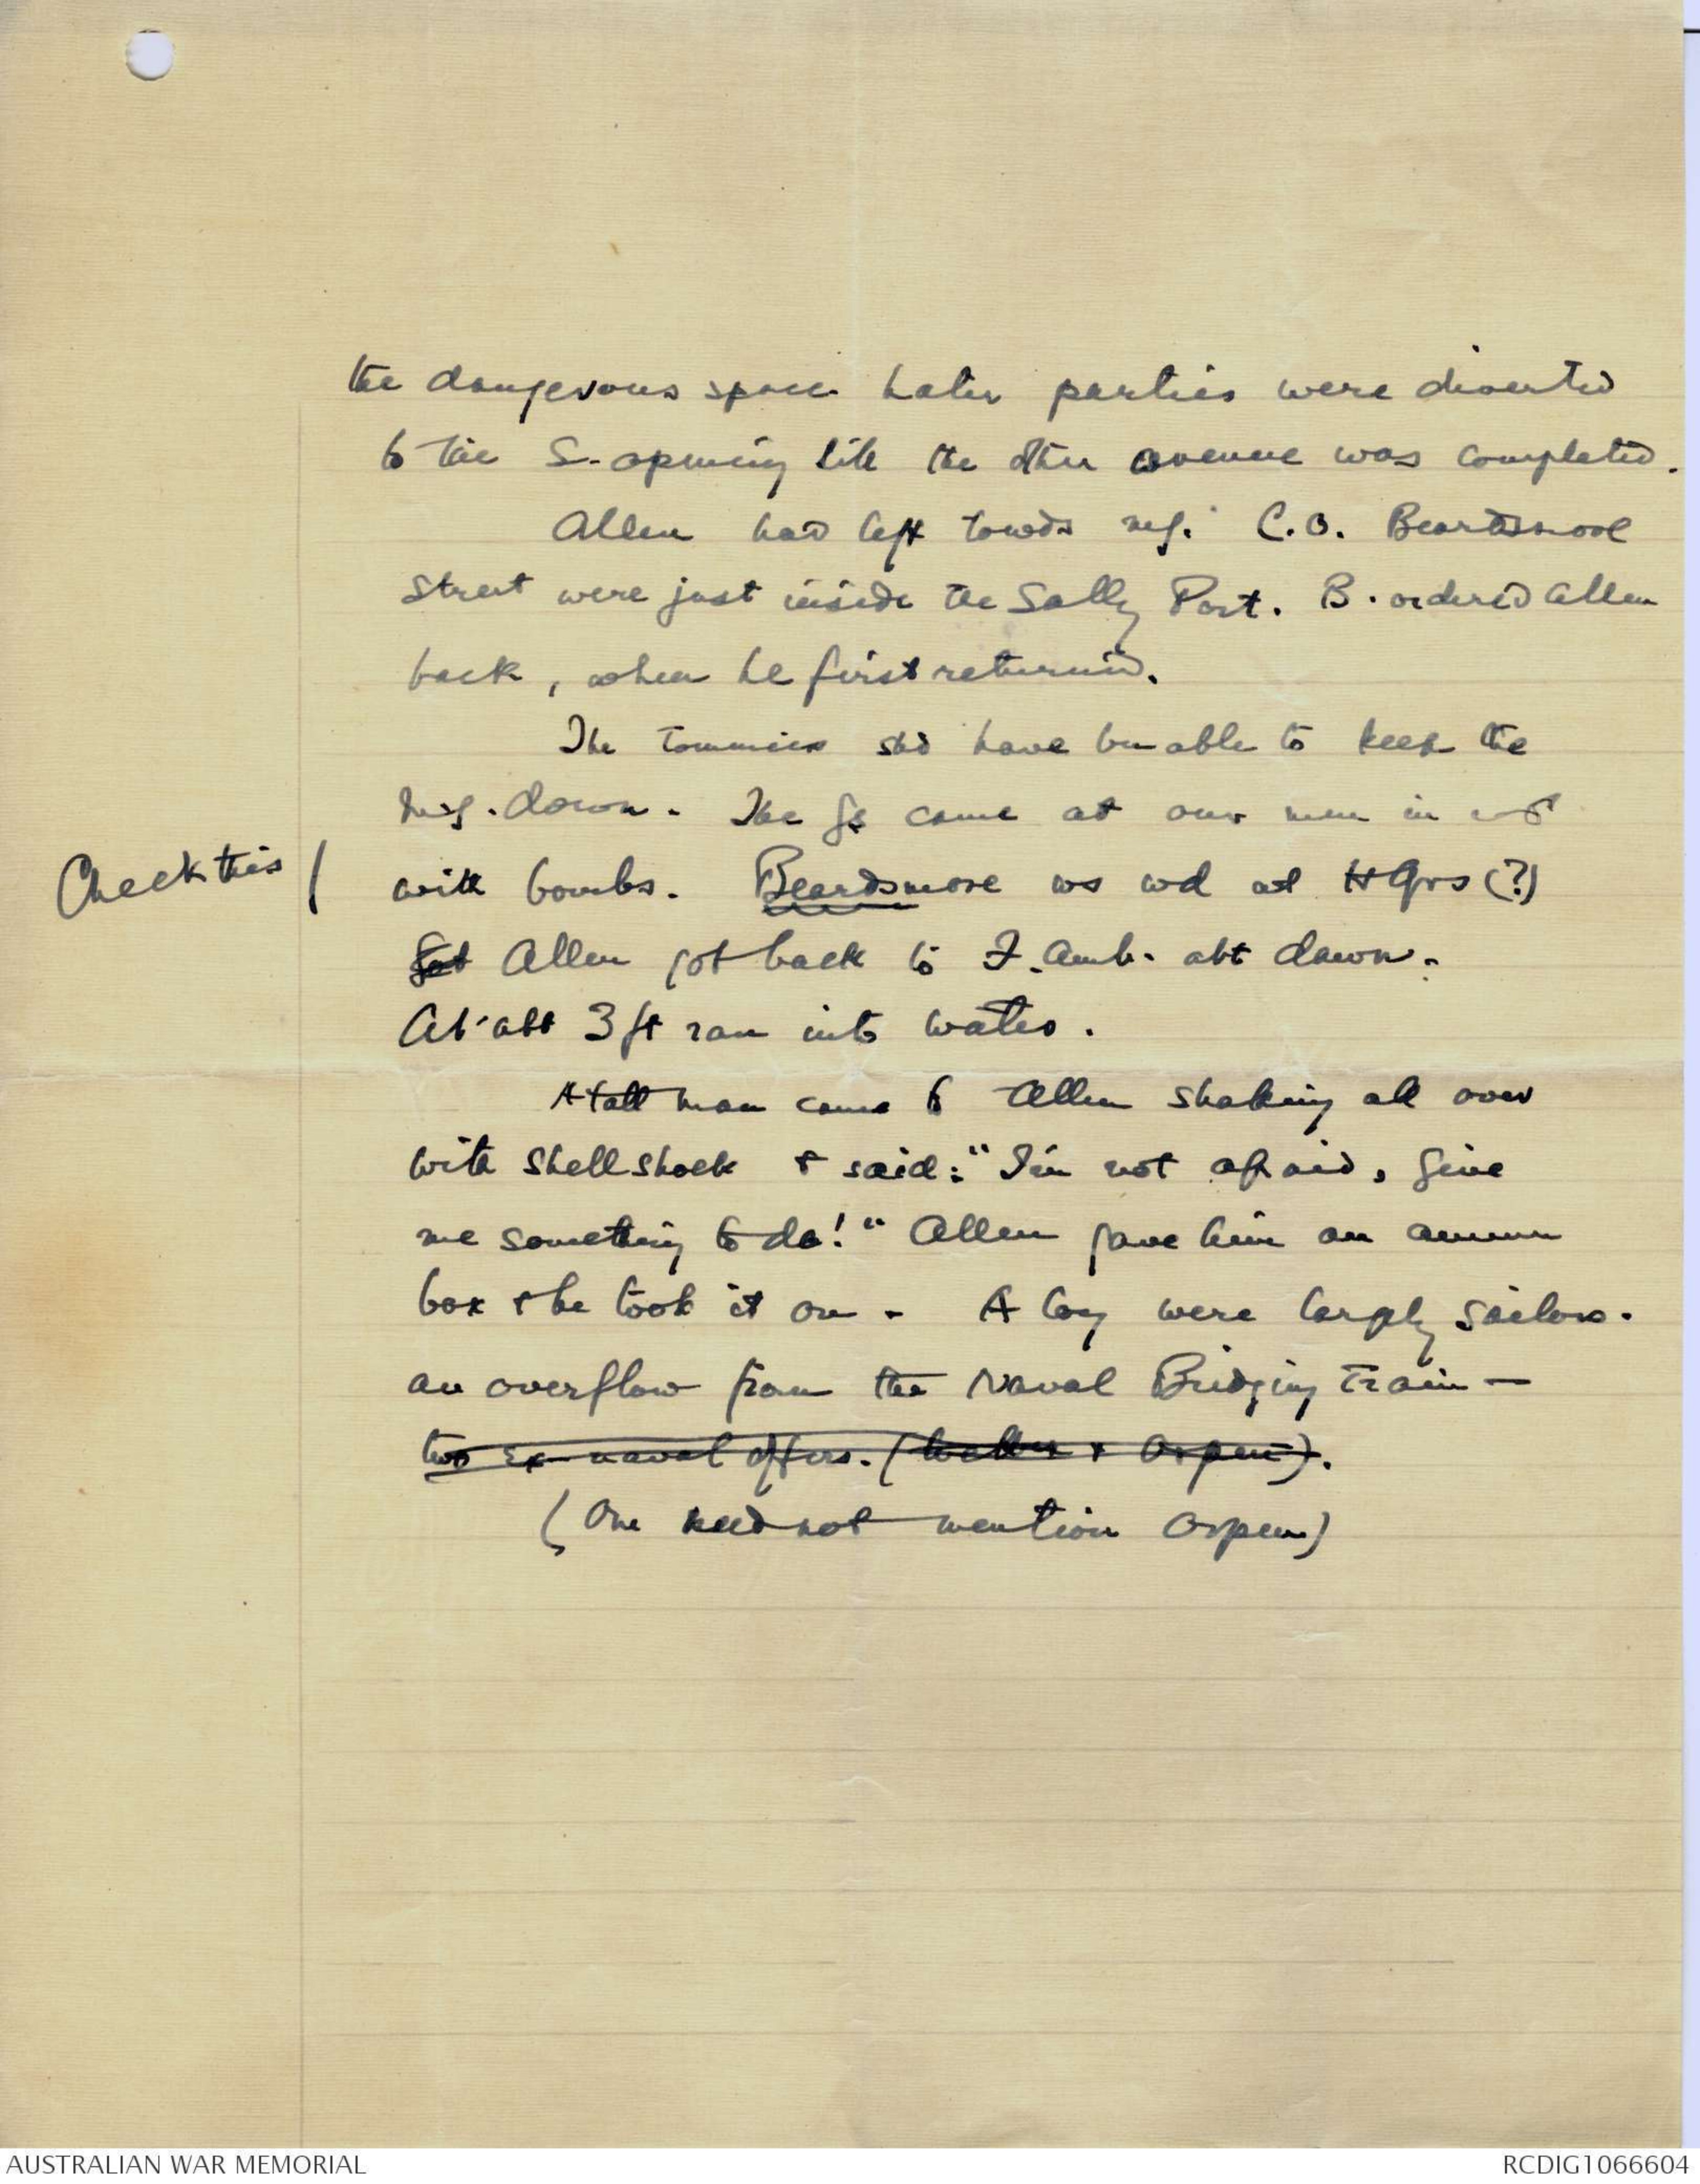 the dangerous space. Later parties were diverted
to the S. opening till the other avenue was completed.
Allen had left towds mg. C.O. Beardsmore
Street were just inside the Sally Port. B. ordered Allen
back, when he first returned.
The Tommies shd have bn able to keep the
m.g. down. The Gs came at our men in
Check this /
with bombs. Beardsmore ws wd at HQrs (?)
Got Allen got back to F. Amb. abt dawn.
At abt 3 ft ran into water.
A tall man came to Allen shaking all over
with shellshock & said: "I'm not afraid, give
me something to do!" Allen gave him an ammn
box & he took it on. A Coy were largely sailors.
an overflow from the Naval Bridging Train -
two ex-naval offrs. ( & Orpen).
(One need not mention Orpen)
AUSTRALIAN WAR MEMORIAL
RCDIG1066604